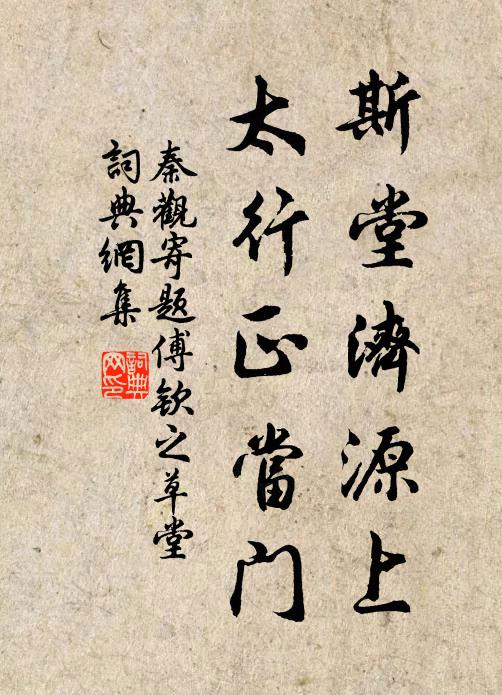 斯堂濟源上
太行正當門
秦觀寄題傅欽之草堂
詞典網集
詞典
网印